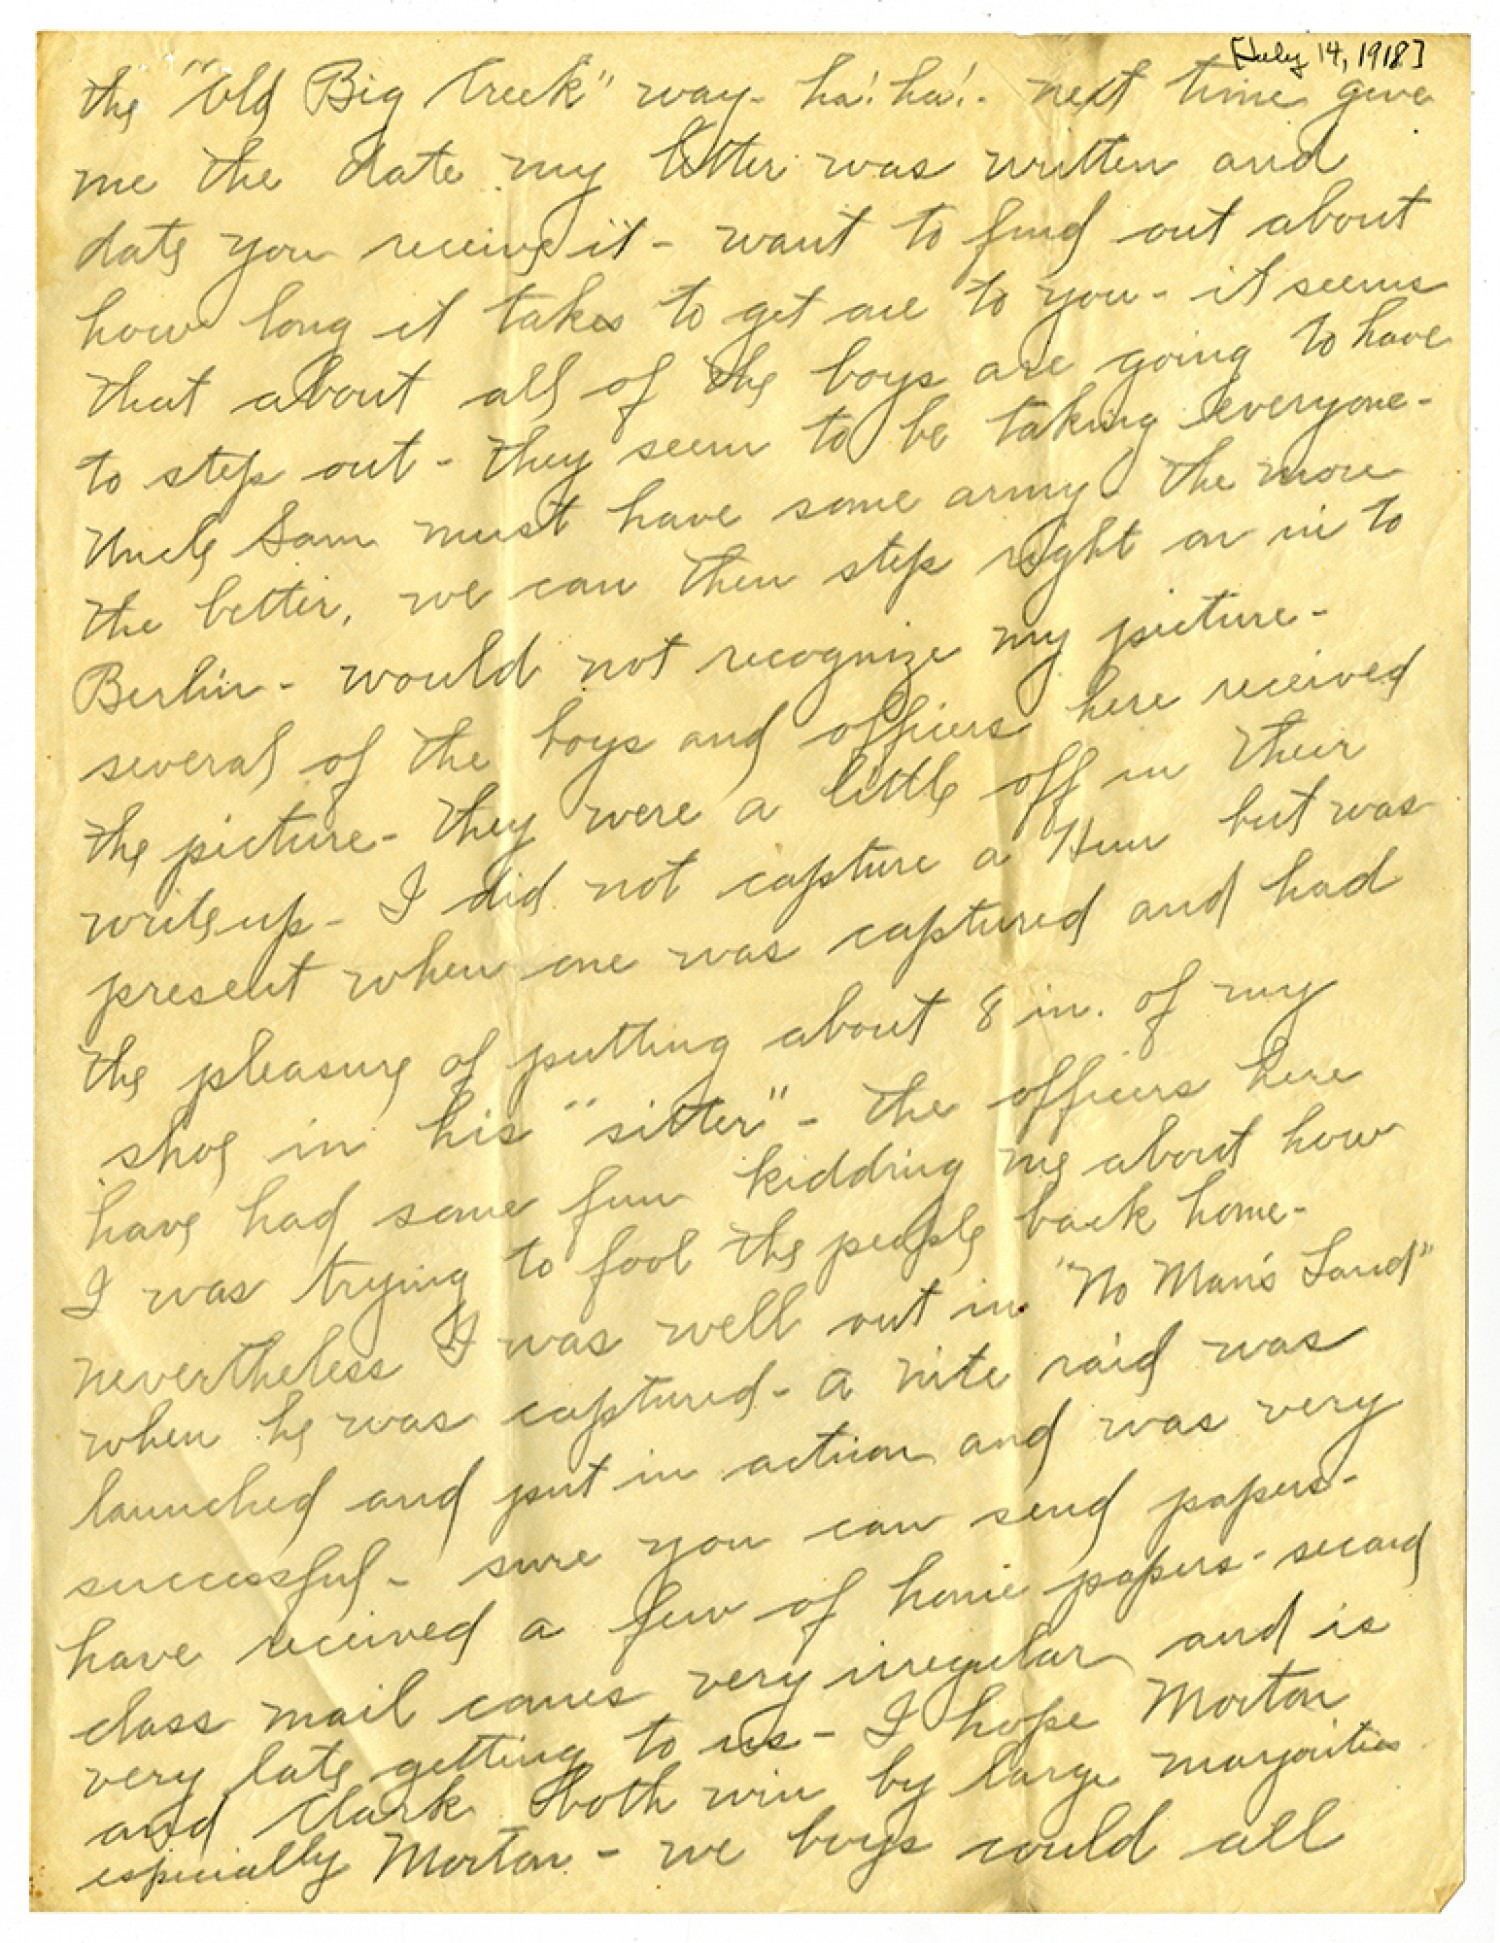 [July 14, 1918]
the "Old Big Creek" way- ha! ha!- next time give
me the date my letter was written and
date you receive it - want to find out about
how long it takes to get one to you - it seems
that about all of the boys are going to have
to step out - they seem to be taking everyone-
Uncle Sam must have some army- the more
the better, we can then step right on in to
Berlin - would not recognize my picture-
several of the boys and officers here received
the picture- they were a little off in their
write up - I did not capture a Hun but was
present when one was captured and had
the pleasure of putting about 8 in. of my
shoe in his "sitter" - the officers here
have had some fun kidding me about how
I was trying to fool the people back home-
nevertheless I was well out in "No Man's Land"
when he was captured - a nite raid was
launched and put in action and was very
successful - sure you can send papers-
have received a few of home papers - second
class mail comes very irregular and is
very late getting to us - I hope Morton
and Clark both win by large marjorities
especially Morton - we boys could all